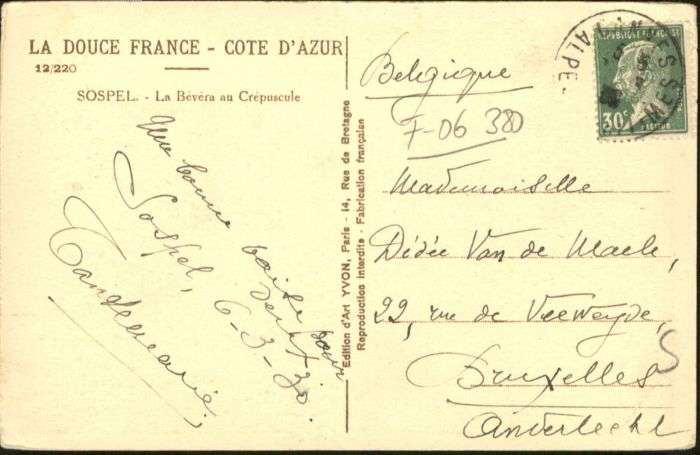 LA DOUCE FRANCE - COTE D'AZUR
12/220
SOSPEL. - La Bévéra au Crépuscule
Une bonne
baise pour
deux
Sospel, 6-3-30.
Tantemarie.
Edition d'Art YVON, Paris - 14, Rue de Bretagne
Reproduction interdite - Fabrication française
REPUBLIQUE FRANÇAISE
30c
Belgique
7-06 380
Mademoiselle
Dédée Van de Maele,
22, rue de Veeweyde,
Bruxelles
Anderlecht